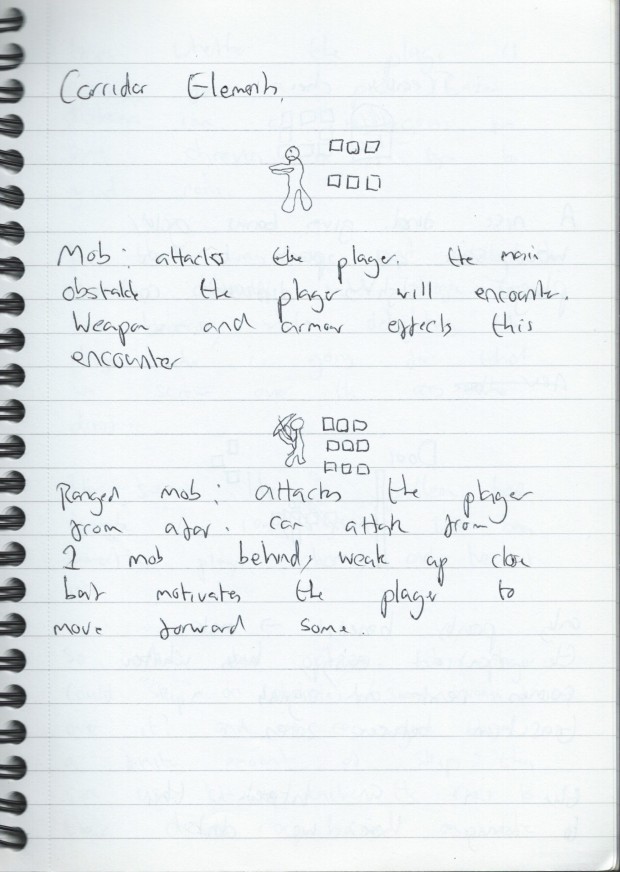 Corridor Elements.
Mob: attacks the player. the main
obstacle the player will encounter.
Weapon and armour effects this
encounter
Ranged mob: attacks the player
from afar. can attak from
1 mob behind, weak up close
but motivates the player to
move forward some.